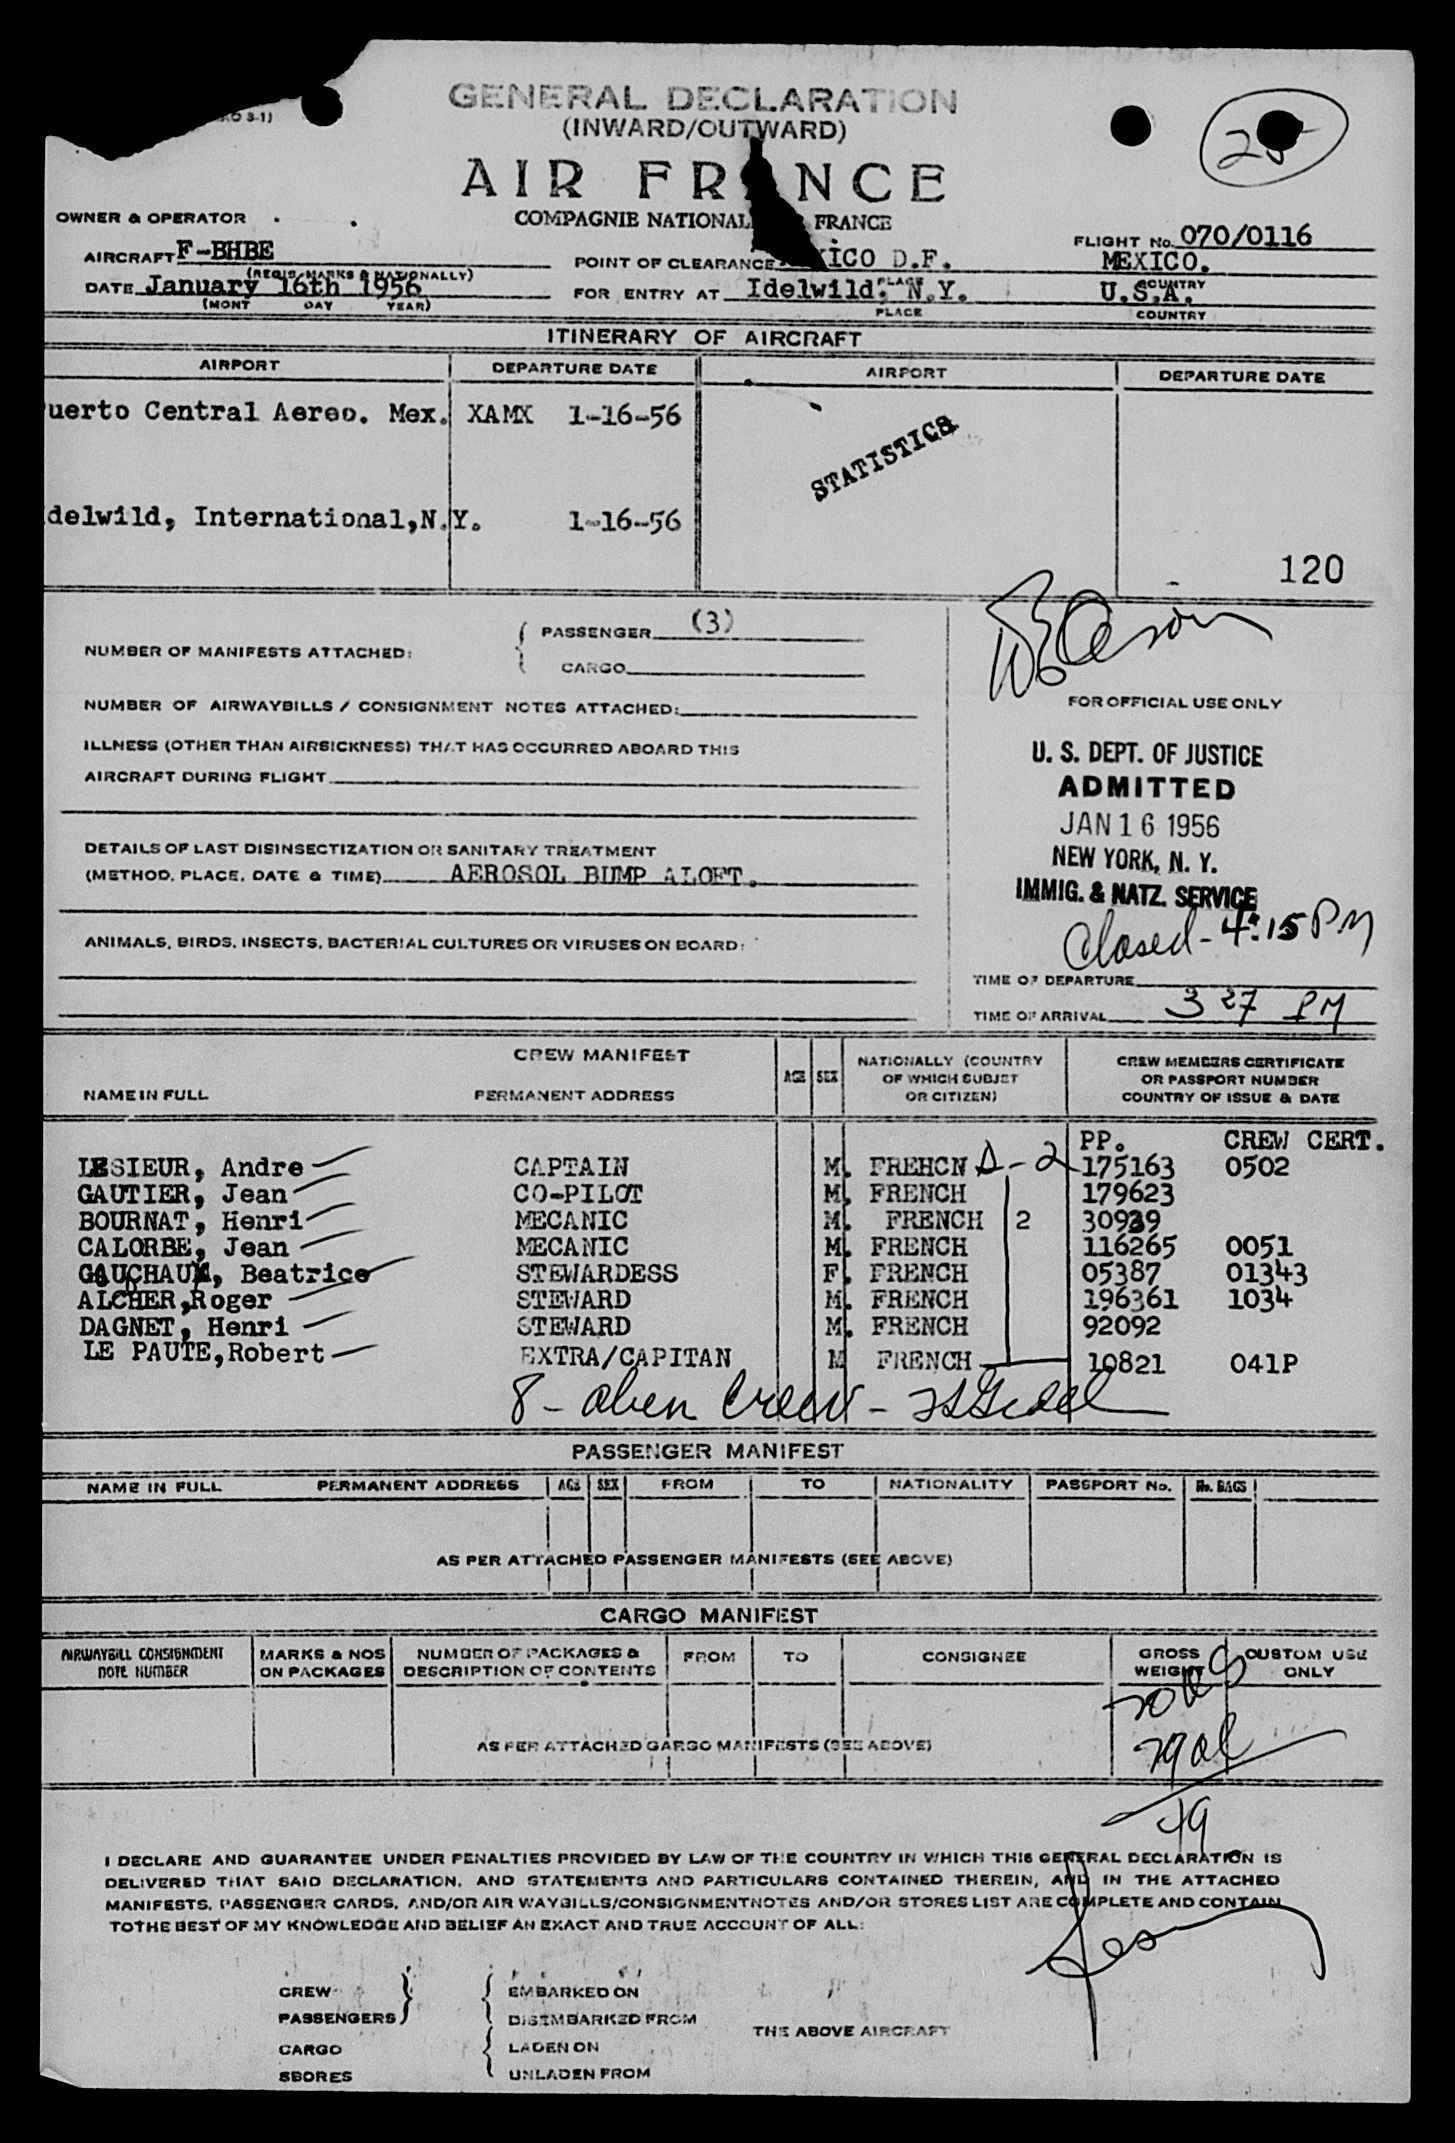 O 3-1)
GENERAL DECLARATION
(INWARD/OUTWARD)
25
AIR FR NCE
COMPAGNIE NATIONAL FRANCE
OWNER & OPERATOR
AIRCRAFT F-BHBE
(REGIS-MARKS & NATIONALLY)
DATE January 16th 1956
(MONT DAY YEAR)
FLIGHT No. 070/0116
POINT OF CLEARANCE ICO D.F. MEXICO.
PLACE COUNTRY
FOR ENTRY AT Idelwild. N.Y. U.S.A.
PLACE COUNTRY
ITINERARY OF AIRCRAFT
AIRPORT DEPARTURE DATE AIRPORT DEPARTURE DATE
uerto Central Aereo. Mex. XAMX 1-16-56
STATISTICS
delwild, International,N.Y. 1-16-56
120
NUMBER OF MANIFESTS ATTACHED: { PASSENGER (3)
CARGO
NUMBER OF AIRWAYBILLS / CONSIGNMENT NOTES ATTACHED:
ILLNESS (OTHER THAN AIRSICKNESS) THAT HAS OCCURRED ABOARD THIS
AIRCRAFT DURING FLIGHT
DETAILS OF LAST DISINSECTIZATION OR SANITARY TREATMENT
(METHOD, PLACE, DATE & TIME) AEROSOL BUMP ALOFT.
ANIMALS, BIRDS, INSECTS, BACTERIAL CULTURES OR VIRUSES ON BOARD:
FOR OFFICIAL USE ONLY
U. S. DEPT. OF JUSTICE
ADMITTED
JAN 16 1956
NEW YORK, N. Y.
IMMIG. & NATZ. SERVICE
Closed - 4:15 PM
TIME OF DEPARTURE
TIME OF ARRIVAL 3 27 PM
CREW MANIFEST
NAME IN FULL PERMANENT ADDRESS AGE SEX NATIONALLY (COUNTRY
OF WHICH SUBJET
OR CITIZEN)
CREW MEMBERS CERTIFICATE
OR PASSPORT NUMBER
COUNTRY OF ISSUE & DATE
PP. CREW CERT.
LESIEUR, Andre CAPTAIN M. FREHCN D-2 175163 0502
GAUTIER, Jean CO-PILOT M. FRENCH 179623
BOURNAT, Henri MECANIC M. FRENCH 2 30939
CALORBE, Jean MECANIC M. FRENCH 116265 0051
GAUCHAUX, Beatrice STEWARDESS F. FRENCH 05387 01343
ALCHER,Roger STEWARD M. FRENCH 196361 1034
DAGNET, Henri STEWARD M. FRENCH 92092
LE PAUTE,Robert EXTRA/CAPITAN M FRENCH 10821 041P
8 - alien crew -
PASSENGER MANIFEST
NAME IN FULL PERMANENT ADDRESS AGE SEX FROM TO NATIONALITY PASSPORT No. No. BAGS
AS PER ATTACHED PASSENGER MANIFESTS (SEE ABOVE)
CARGO MANIFEST
AIRWAYBILL CONSIGNMENT
NOTE NUMBER
MARKS & NOS
ON PACKAGES
NUMBER OF PACKAGES &
DESCRIPTION OF CONTENTS
FROM TO CONSIGNEE
GROSS
WEIGHT
CUSTOM USE
ONLY
AS PER ATTACHED CARGO MANIFESTS (SEE ABOVE)
I DECLARE AND GUARANTEE UNDER PENALTIES PROVIDED BY LAW OF THE COUNTRY IN WHICH THIS GENERAL DECLARATION IS
DELIVERED THAT SAID DECLARATION, AND STATEMENTS AND PARTICULARS CONTAINED THEREIN, AND IN THE ATTACHED
MANIFESTS, PASSENGER CARDS, AND/OR AIR WAYBILLS/CONSIGNMENTNOTES AND/OR STORES LIST ARE COMPLETE AND CONTAIN
TOTHE BEST OF MY KNOWLEDGE AND BELIEF AN EXACT AND TRUE ACCOUNT OF ALL:
CREW } { EMBARKED ON
PASSENGERS DISEMBARKED FROM
THE ABOVE AIRCRAFT
CARGO { LADEN ON
SBORES UNLADEN FROM